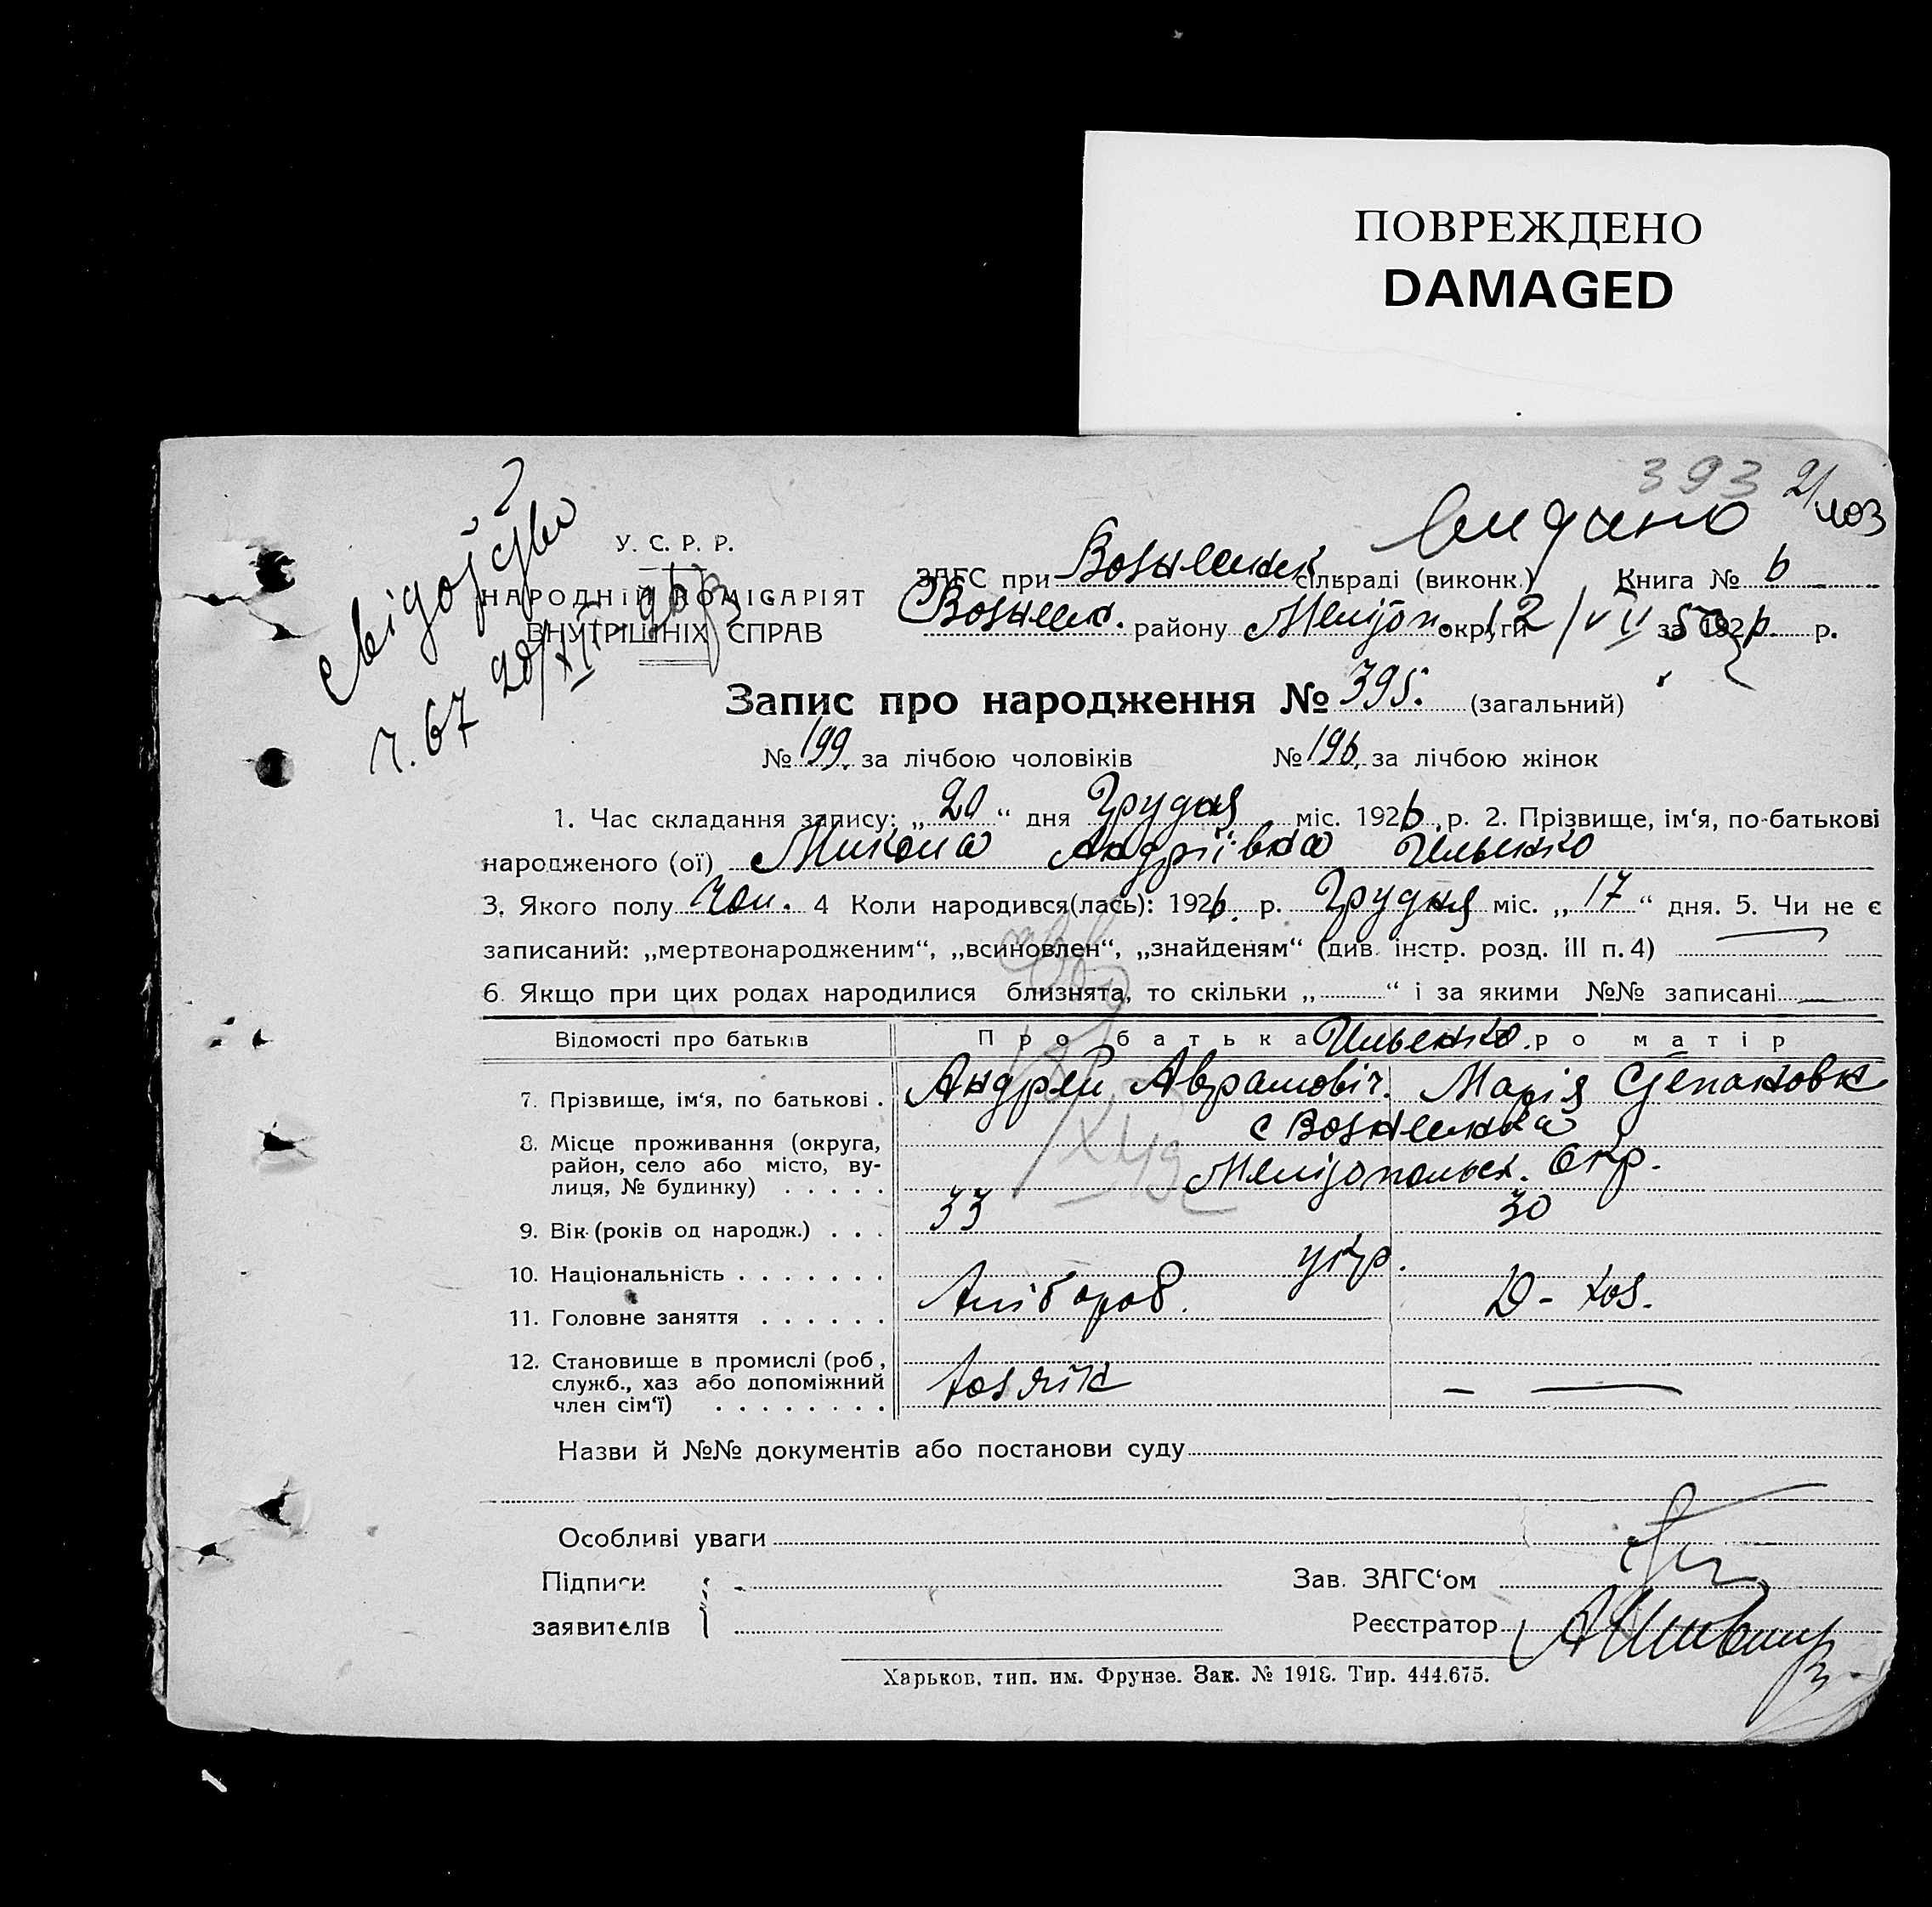 ПОВРЕЖДЕНО
DAMAGED
393
видано
У. С. Р. Р.
НАРОДНІЙ КОМІСАРІЯТ
ВНУТРІШНІХ СПРАВ
ч. 67
ЗАГС при Вознесенск сільраді (виконк.) Книга № 6
Вознесен. району Мелітоп. округи за 1926 р.
Запис про народження № 395. (загальний)
№ 199. за лічбою чоловіків № 196. за лічбою жінок
1. Час складання запису: „20“ дня Грудня міс. 1926 р. 2. Прізвище, ім‘я, по-батькові
народженого (ої) Микола Андріівка Ильенко
3. Якого полу Чол. 4 Коли народився(лась): 1926. р. Грудня міс. „17“ дня. 5. Чи не є
записаний: „мертвонародженим“, „всиновлен“, „знайденям“ (див. інстр. розд. III п. 4)
6 Якщо при цих родах народилися близнята, то скільки „ “ і за якими №№ записані
Відомості про батьків Про батька Ильенко. Про матір
7. Прізвище, ім‘я, по батькові . Андрей Аврамовіч. Марія Степановк
8. Місце проживання (округа, с Вознесенка
район, село або місто, ву- Мелітопольск. Окр.
лиця, № будинку) . . . . .
9. Вік (років од народж.) . . . 33 30
10. Національність . . . . . . . укр.
11. Головне заняття . . . . . . Хлібороб. Д- хоз.
12. Становище в промислі (роб., хозяїн — —
служб., хаз або допоміжний
член сім‘ї) . . . . . . . .
Назви й №№ документів або постанови суду
Особливі уваги
Підписи
заявителів
Зав. ЗАГС‘ом
Реєстратор
Харьков, тип. им. Фрунзе. Зак. № 1918. Тир. 444.675.